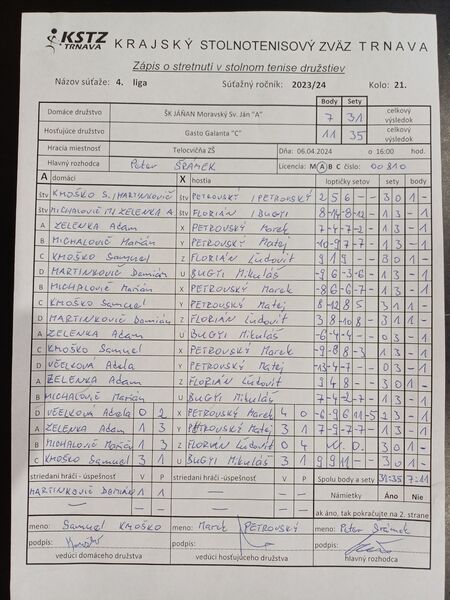 KSTZ TRNAVA KRAJSKÝ STOLNOTENISOVÝ ZVÄZ TRNAVA
Zápis o stretnutí v stolnom tenise družstiev
Názov súťaže: 4. liga Súťažný ročník: 2023/24 Kolo: 21.
Body Sety
Domáce družstvo ŠK JÁŇAN Moravský Sv. Ján "A" 7 31 celkový výsledok
Hosťujúce družstvo Gasto Galanta "C" 11 35 celkový výsledok
Hracia miestnosť Telocvičňa ZŠ Dňa: 06.04.2024 o 16:00 hod.
Hlavný rozhodca Peter ŠRÁMEK Licencia: M A B C číslo: 00810
A domáci X hostia loptičky setov sety body
štv KMOŠKO S. / MARTINKOVIČ štv PETROVSKÝ / PETROVSKÝ 2 5 6 - - 3 0 1 -
štv MICHALOVIČ M / ZELENKA A. štv FLORIÁN / BUGYI 8 -14 -8 -12 - 1 3 - 1
A ZELENKA Adam X PETROVSKÝ Marek 7 -4 -7 -2 - 1 3 - 1
B MICHALOVIČ Marián Y PETROVSKÝ Matej -10 -9 7 -7 - 1 3 - 1
C KMOŠKO Samuel Z FLORIÁN Ľudovít 9 1 9 - - 3 0 1 -
D MARTINKOVIČ Damián U BUGYI Mikuláš -9 6 -3 -6 - 1 3 - 1
B MICHALOVIČ Marián X PETROVSKÝ Marek -8 6 -6 -7 - 1 3 - 1
C KMOŠKO Samuel Y PETROVSKÝ Matej 8 -12 8 5 - 3 1 1 -
D MARTINKOVIČ Damián Z FLORIÁN Ľudovít 3 8 -10 8 - 3 1 1 -
A ZELENKA Adam U BUGYI Mikuláš -6 -4 -4 - - 0 3 - 1
C KMOŠKO Samuel X PETROVSKÝ Marek -9 -8 8 -3 - 1 3 - 1
D VČELKOVÁ Adela Y PETROVSKÝ Matej -13 -4 -7 - - 0 3 - 1
A ZELENKA Adam Z FLORIÁN Ľudovít 9 4 8 - - 3 0 1 -
B MICHALOVIČ Marián U BUGYI Mikuláš 7 -4 -2 -7 - 1 3 - 1
D VČELKOVÁ Adela 0 2 X PETROVSKÝ Marek 4 0 -6 -9 6 11 -5 2 3 - 1
A ZELENKA Adam 1 3 Y PETROVSKÝ Matej 3 1 7 -9 -7 -7 - 1 3 - 1
B MICHALOVIČ Marián 1 3 Z FLORIÁN Ľudovít 0 4 W. O. 3 0 1 -
C KMOŠKO Samuel 3 1 U BUGYI Mikuláš 3 1 9 9 11 - - 3 0 1 -
striedaní hráči - úspešnosť V P striedaní hráči - úspešnosť V P Spolu body a sety 31:35 7:11
MARTINKOVIČ Damián 1 1 — — — Námietky Áno Nie
— — — — — — ak áno, tak pokračujte na 2. strane
meno: Samuel KMOŠKO meno: Marek PETROVSKÝ meno: Peter Šrámek
podpis: podpis: podpis:
vedúci domáceho družstva vedúci hosťujúceho družstva hlavný rozhodca